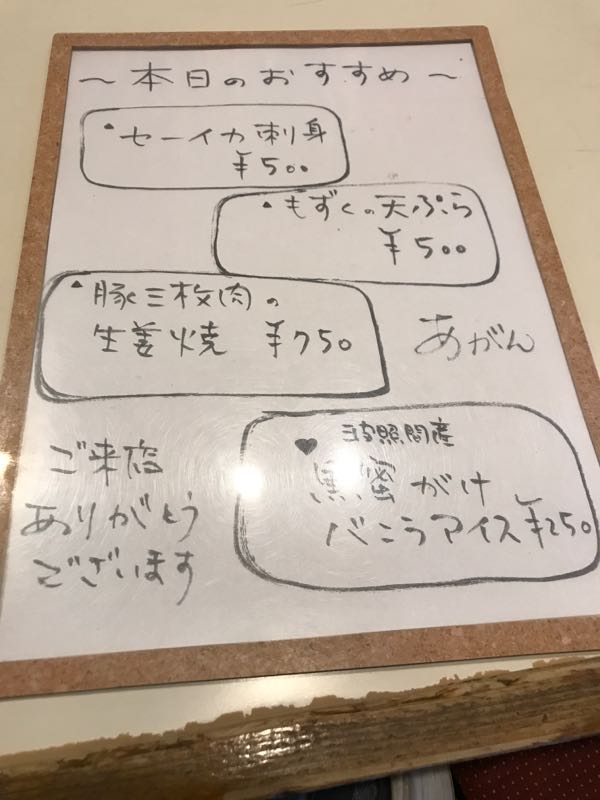 ～本日のおすすめ～
▲セーイカ刺身
¥500
▲もずくの天ぷら
¥500
▲豚三枚肉の
生姜焼 ¥750
あがん
♥波照間産
黒蜜がけ
バニラアイス ¥250
ご来店
ありがとう
ございます